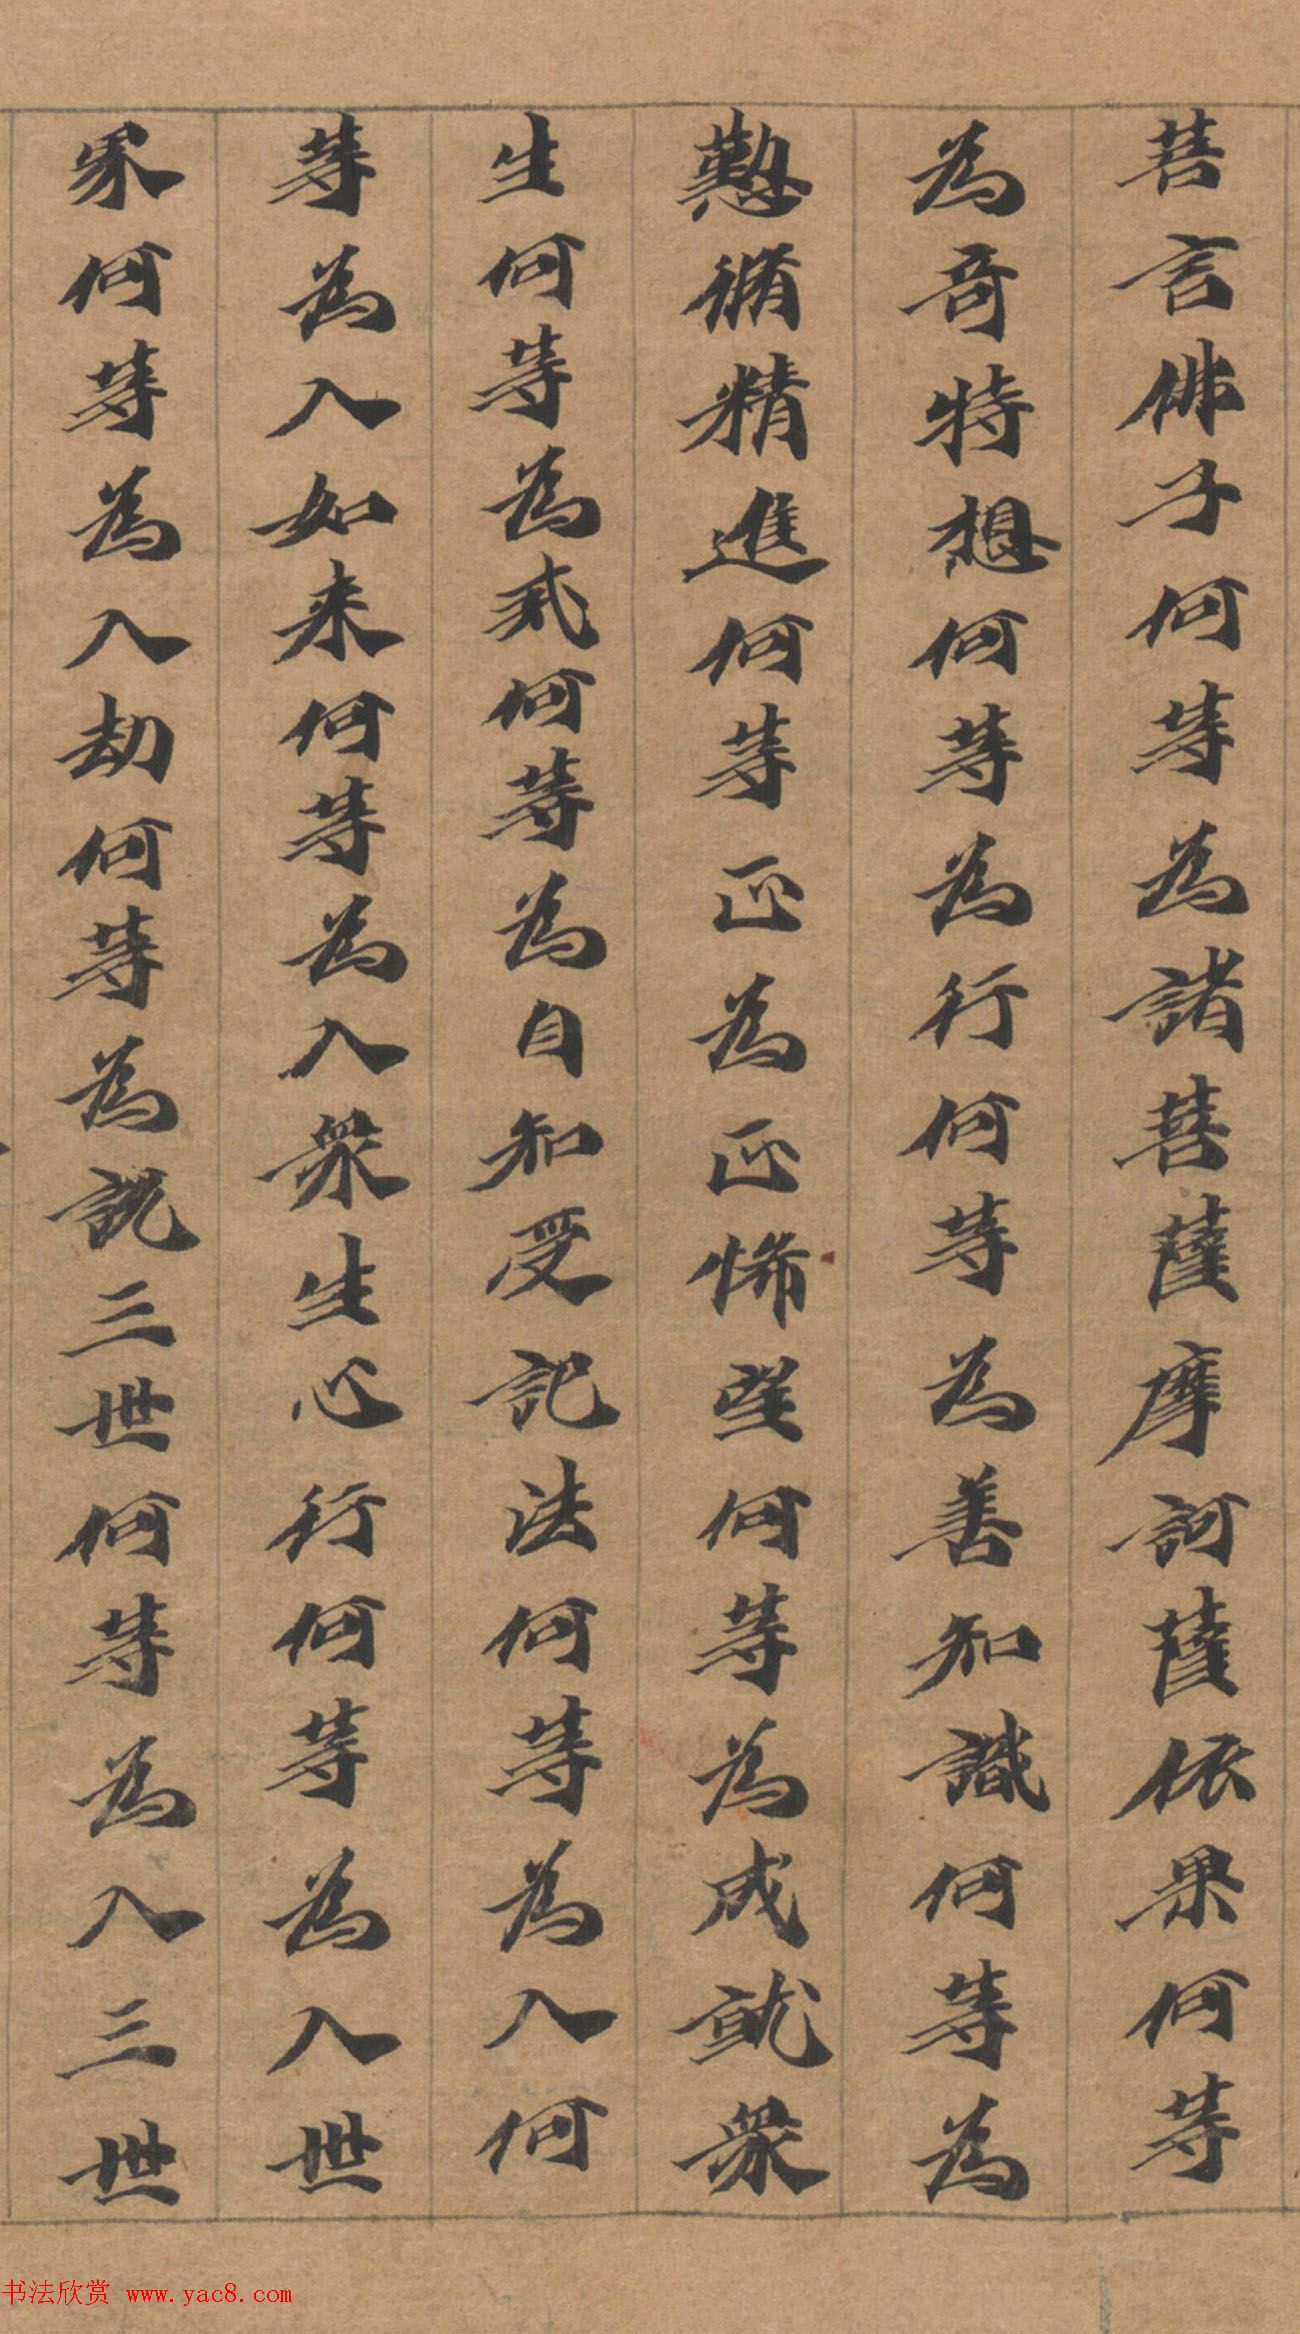 菩言佛子何等為諸菩薩摩訶薩依果何等
為奇特想何等為行何等為善知識何等為
懃脩精進何等正為正悕望何等為成就衆
生何等為戒何等為自知受記法何等為入何
等為入如来何等為入衆生心行何等為入世
界何等為入劫何等為説三世何等為入三世
书法欣赏 www.yac8.com